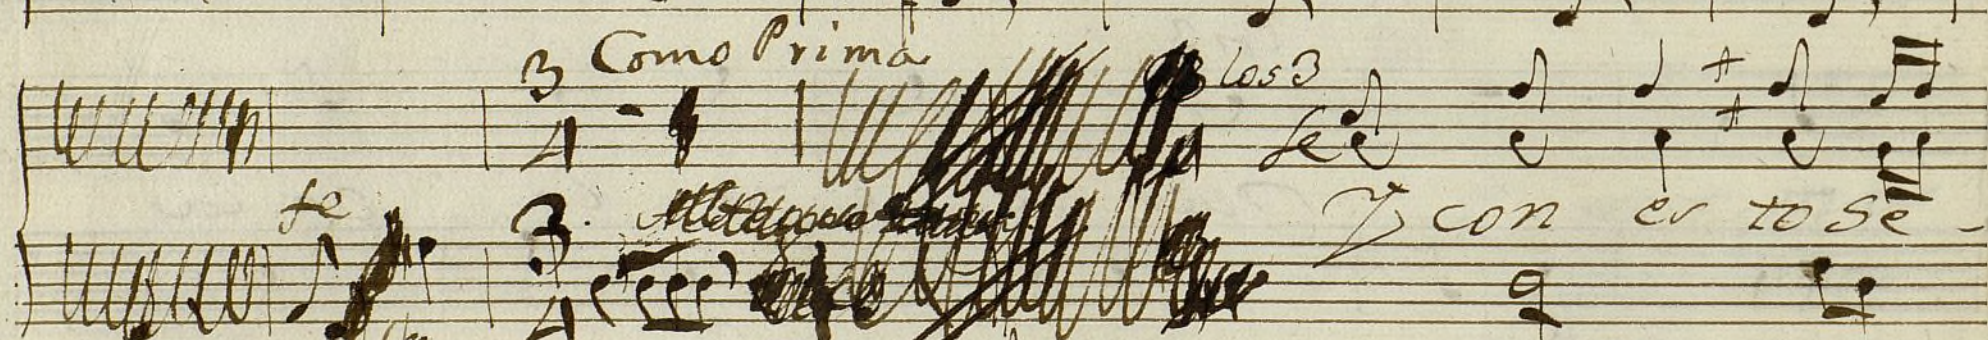 Como Prima
3 los 3
4 Se
te 3
Y con es to se -
4